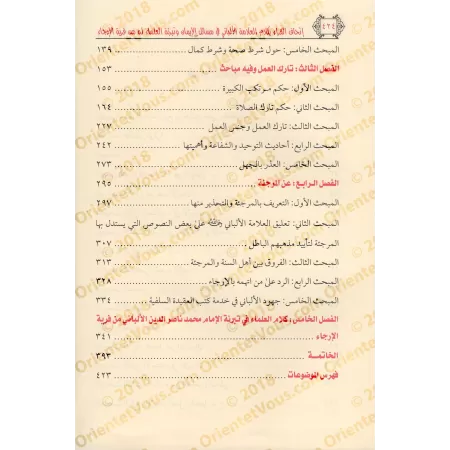 ٤٢٤
إتحاف القراء بكلام العلامة الألباني في مسائل الإيمان وتبرئة العلماء له من فرية الإرجاء
المبحث الخامس: حول شرط صحة وشرط كمال ١٣٩
الفصل الثالث: تارك العمل وفيه مباحث ١٥٣
المبحث الأول: حكم مرتكب الكبيرة ١٥٥
المبحث الثاني: حكم تارك الصلاة ١٦٤
المبحث الثالث: تارك العمل وجنس العمل ٢٢٧
المبحث الرابع: أحاديث التوحيد والشفاعة وأهميتها ٢٤٢
المبحث الخامس: العذر بالجهل ٢٧٣
الفصل الرابع: عن المرجئة ٢٩٥
المبحث الأول: التعريف بالمرجئة والتحذير منها ٢٩٧
المبحث الثاني: تعليق العلامة الألباني على بعض النصوص التي يستدل بها
المرجئة لتأييد مذهبهم الباطل ٣٠٧
المبحث الثالث: الفروق بين أهل السنة والمرجئة ٣١٣
المبحث الرابع: الرد على من اتهمه بالإرجاء ٣٢٨
المبحث الخامس: جهود الألباني في خدمة كتب العقيدة السلفية ٣٣٤
الفصل الخامس: كلام العلماء في تبرئة الإمام محمد ناصر الدين الألباني من فرية
الإرجاء ٣٤١
الخاتمـة ٣٩٣
فهرس الموضوعات ٤٢٣
OrientetVous.com © 2018